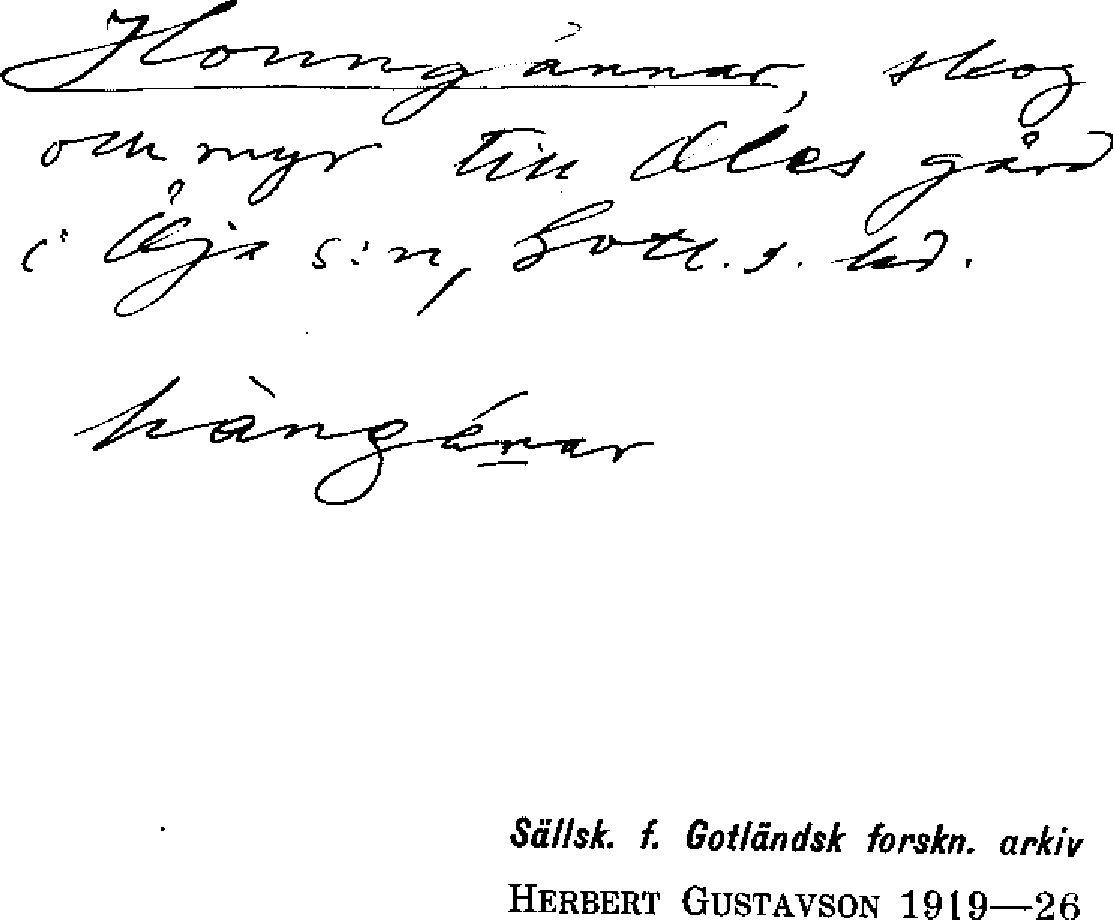 Honngånnar, skog
och myr till Oles gård
i Öja s:n, Gotl. s. hd.
hàngénar
Sällsk. f. Gotländsk forskn. arkiv
HERBERT GUSTAVSON 1919—26